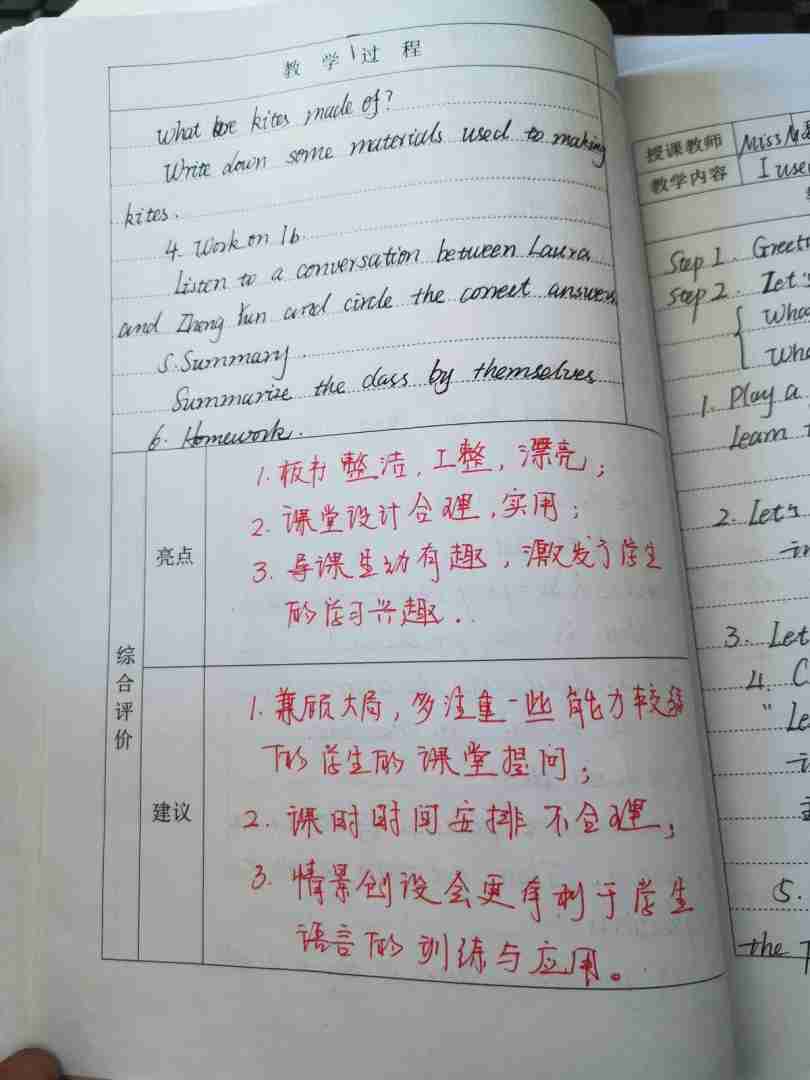 教 学 过 程
What are kites made of?
Write down some materials used to making
kites.
4. Work on 1b.
Listen to a conversation between Laura
and Zheng Yun and circle the correct answers
5. Summary.
Summarize the class by themselves
6. Homework.
综合评价
亮点
1. 板书整洁，工整，漂亮；
2. 课堂设计合理，实用；
3. 导课生动有趣，激发了学生
的学习兴趣．
建议
1. 兼顾大局，多注重一些能力较弱
的学生的课堂提问；
2. 课时时间安排不合理；
3. 情景创设会更有利于学生
语言的训练与应用。
授课教师 Miss
教学内容 I use
Step 1. Greet
Step 2. Let's
What
Wha
1. Play a
learn
2. Let's
in
3. Let
4. C
"Le
5.
the